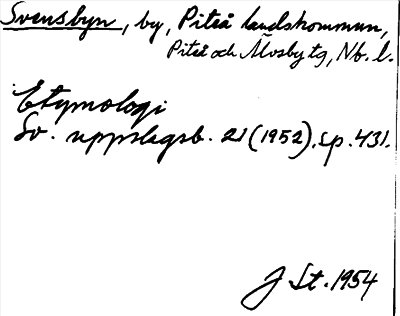 Svensbyn, by, Piteå landskommun,
Piteå och Älvsby tg, Nb. l.
Etymologi
Sv. uppslagsb. 21 (1952), sp. 431.
J St. 1954